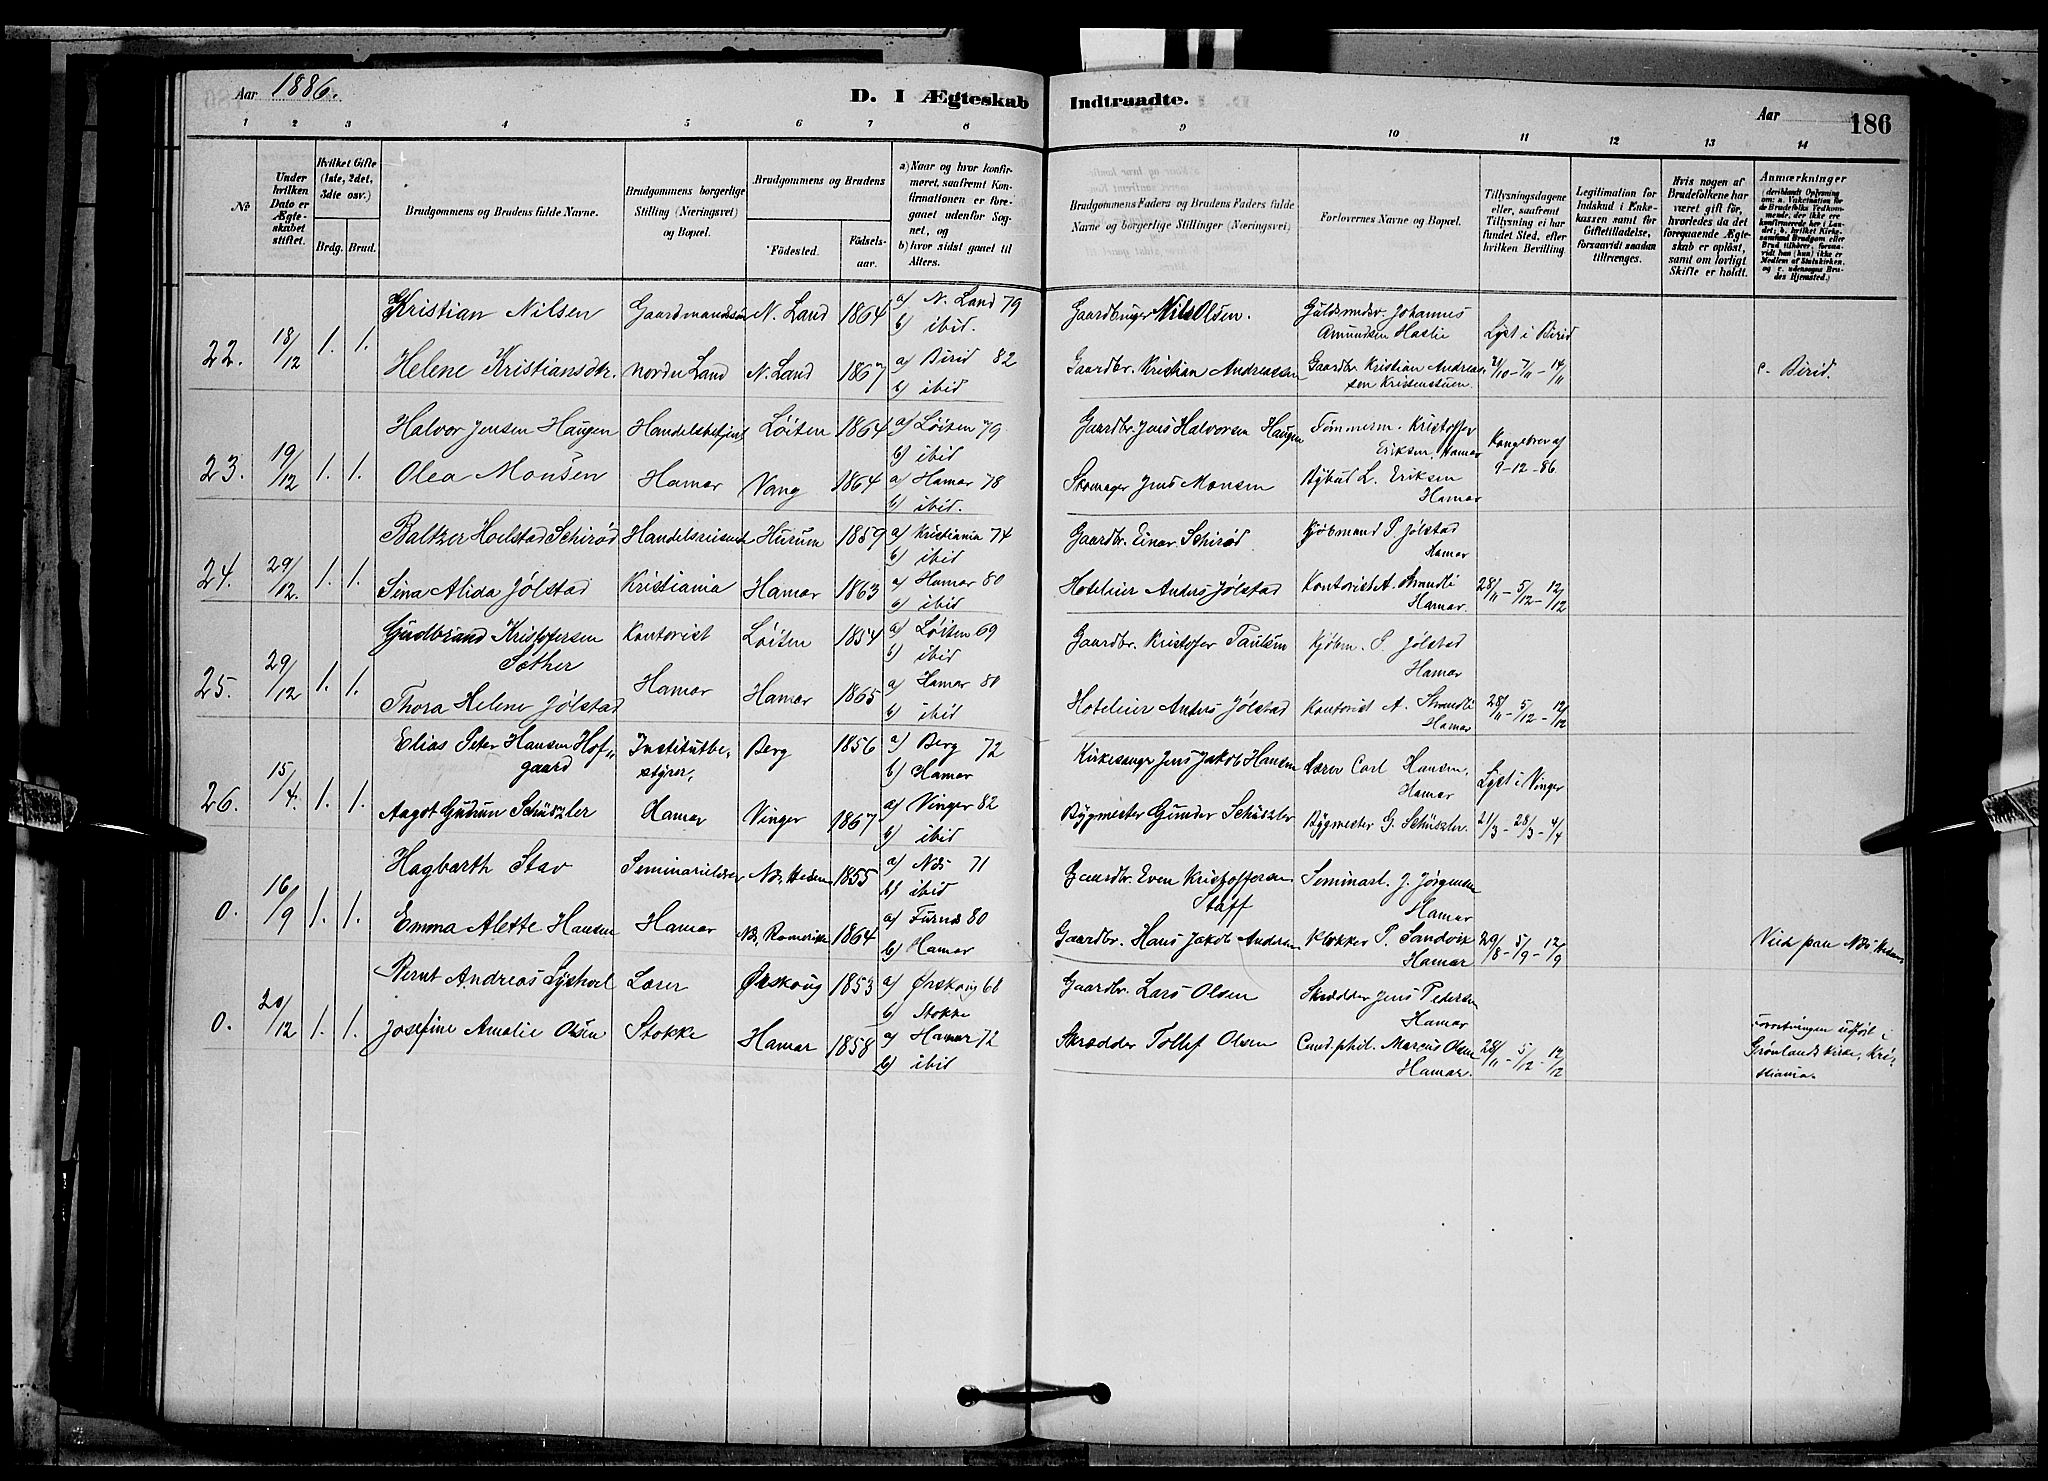 Aar 1886.
D. I Ægteskab Indtraadte.
Aar
186
1 2 3 4 5 6 7 8 9 10 11 12 13 14
No
Under hvilken Dato er Ægteskabet stiftet.
Hvilket Gifte (1ste, 2det, 3die osv.)
Brdg. Brud.
Brudgommens og Brudens fulde Navne.
Brudgommens borgerlige Stilling (Næringsvei) og Bopæl.
Brudgommens og Brudens
Födested. Födsels-aar.
a) Naar og hvor konfirmeret, saafremt Konfirmationen er foregaaet udenfor Sognet, og
b) hvor sidst gaaet til Alters.
Brudgommens Faders og Brudens Faders fulde Navne og borgerlige Stillinger (Næringsvei)
Forlovernes Navne og Bopæl.
Tillysningsdagene eller, saafremt Tillysning ei har fundet Sted, efter hvilken Bevilling.
Legitimation for Indskud i Enkekassen samt for Giftetilladelse, forsaavidt saadan tiltrænges.
Hvis nogen af Brudefolkene har været gift för, hvorledes da det foregaaende Ægteskab er oplöst, samt om lovligt Skifte er holdt.
Anmærkninger
(deriblandt Oplysning om: a. Vakcination for de Brudefolks Vedkommende, der ikke ere konfirmerede her i Landet; b. hvilket Kirkesamfund Brudgom eller Brud tilhörer, forsaavidt han (hun) ikke er Medlem af Statskirken. og c. udensogns Brudes Hjemsted.)
22. 18/12 1. 1.
Kristian Nilsen Gaardmandssøn N. Land 1864 a) N. Land 79
b) ibid.
Gaardbruger Nils Olsen. Guldsmedsv. Johannes
Amundsen Haslie Lyst i Birid
Helene Kristiansdtr. Nordre Land N. Land 1867 a) Birid 82
b) ibid
Gaardbr. Kristian Andreassen Gaardbr. Kristian Andreas-
sen Kristenstuen. 31/10 - 7/11 - 14/11 c- Birid.
23. 19/12 1. 1.
Halvor Jensen Haugen Handelsbetjent Løiten 1864 a) Løiten 79
b) ibid
Gaardbr. Jens Halvorsen Haugen Tømmerm. Kristoffer
Eriksen, Hamar Kongebrev af
9-12-86
Olea Monsen Hamar Vang 1864 a) Hamar 78
b) ibid.
Skomager Jens Monsen Bybud L. Eriksen
Hamar
24. 29/12. 1. 1.
Baltzer Hoelstad Schirød Handelsreisende Hurum 1859 a) Kristiania 74
b) ibid
Gaardbr. Einar Schirød Kjøbmand P Jølstad
Hamar
Sina Alida Jølstad Kristiania Hamar 1863 a) Hamar 80
b) ibid
Hotelier Anders Jølstad Kontorist A. Strandli
Hamar. 28/11 - 5/12 - 12/12
25. 29/12 1. 1.
Gudbrand Kristofersen
Sæther Kontorist Løiten 1854 a) Løiten 69
b) ibid
Gaardbr. Kristoffer Paulsen Kjøbm. P. Jølstad
Hamar
Thora Helene Jølstad Hamar Hamar 1865 a) Hamar 80
b) ibid
Hotelier Anders Jølstad Kontorist A. Strandli
Hamar 28/11 - 5/12 - 12/12
26. 15/4. 1. 1.
Elias Peter Hansen Hof„
gaard Institutbe-
styrer, Berg 1856 a) Berg 72
b) Hamar
Kirkesanger Jens Jakob Hansen Lærer Carl Hansen,
Hamar Lyst i Vinger
Aagot Gudrun Schüszler Hamar Vinger 1867 a) Vinger 82
b) ibid
Bygmester Gunder Schüszler Bygmester G. Schüszler. 21/3 - 28/3 - 4/4
0. 16/9 1. 1.
Hagbarth Stav Seminarielærer Næs Hedem 1855 a) Næs 71
b) ibid
Gaardbr. Even Kristoffersen
Staff Seminarl. J. Jørgensen
Hamar
Emma Alette Hansen Hamar Næs Romerike 1864 a) Furnæs 80
b) Hamar
Gaardbr. Hans Jakob Andersen Klokker P. Sandvik
Hamar 29/8 - 5/9 - 12/9 Vied paa Næs Hedem.
0. 20/12 1. 1.
Bernt Andreas Lysholl Lærer Ørskoug 1853 a) Ørskoug 68
b) Stokke
Gaardbr. Lars Olsen Skrædder Jens Pedersen
Hamar
Josefine Amalie Olsen Stokke Hamar 1858 a) Hamar 72
b) ibid
Skrædder Tollef Olsen Cand. phil. Marcus Olsen
Hamar. 28/11 - 5/12 - 12/12
Forretningen udført i
Grønlands Kirke, Kri-
stiania.